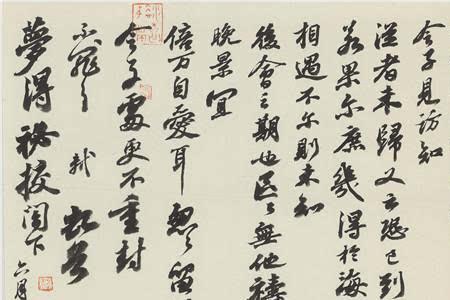 令子見訪知
從者未歸又云恐已到
若果尔庶幾得於海
相遇不尔則未知
後會之期也區〻無他禱
晚景宜
倍万自愛耳 怱〻留
令子處更不重封
不罪〻 軾 頓首
夢得祕校閣下 六月